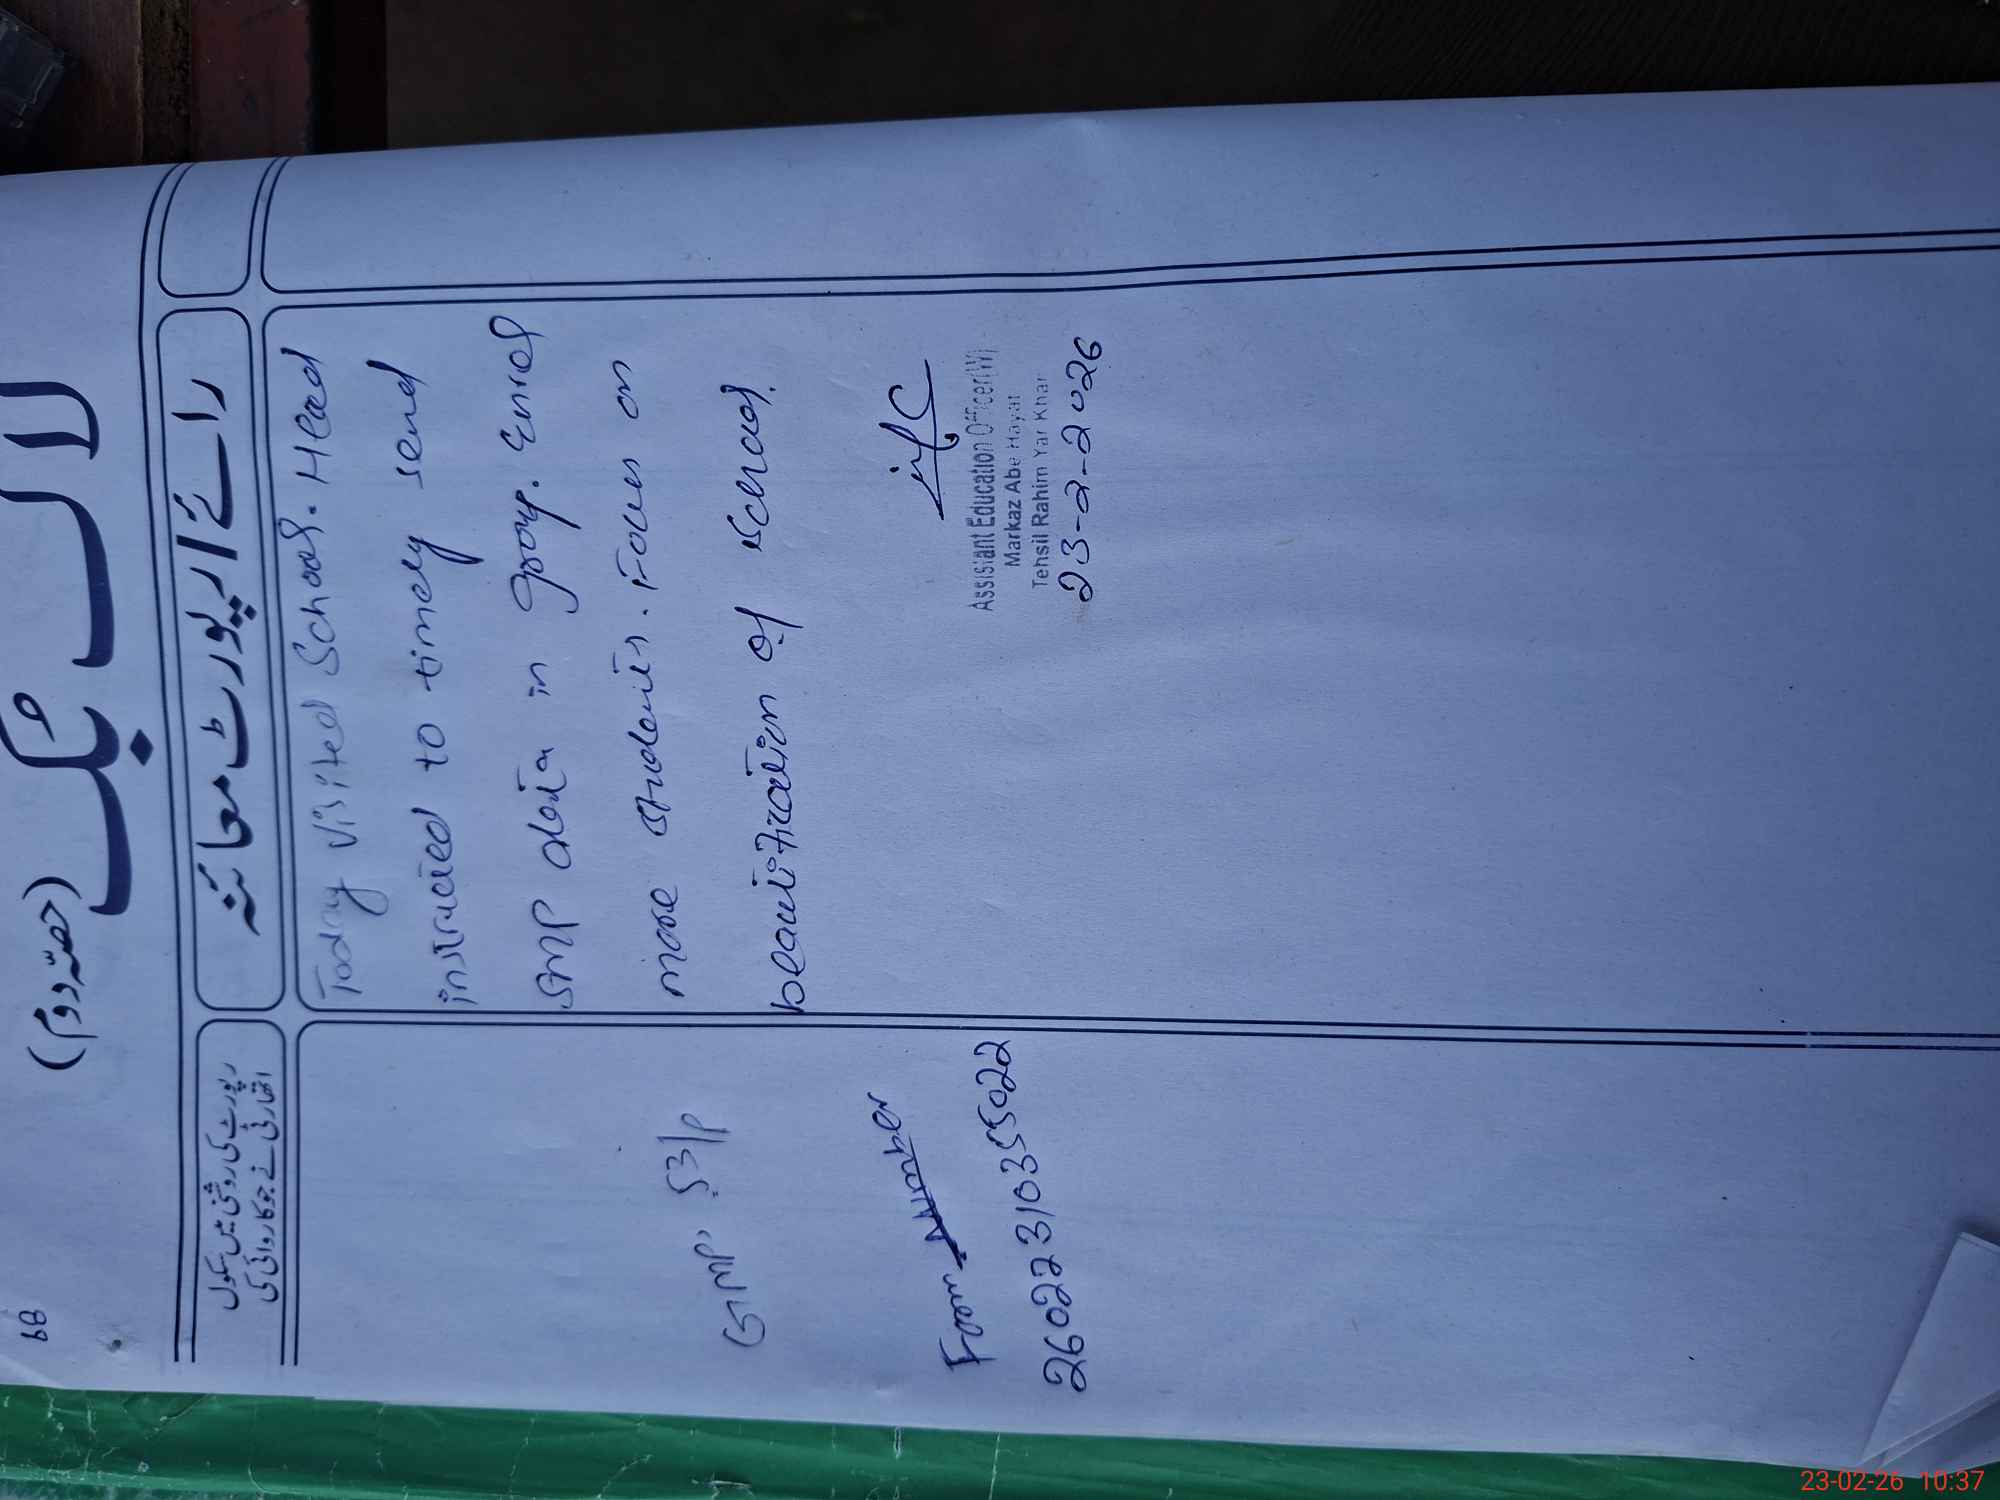 89
(حصّہ دوم)
لاگ بک
رپورٹ کی روشنی میں سکول
اتھارٹی نے جو کاروائی کی
رائے / رپورٹ معائنہ
Today visited School. Head
instructed to timely send
SMP data in group. Enrol
more students. Focus on
beautification of school.
Assistant Education Officer(W)
Markaz Abe Hayat
Tehsil Rahim Yar Khan
23-2-2026
GMPS 53/P
Form Number
26022310355022
23-02-26 10:37